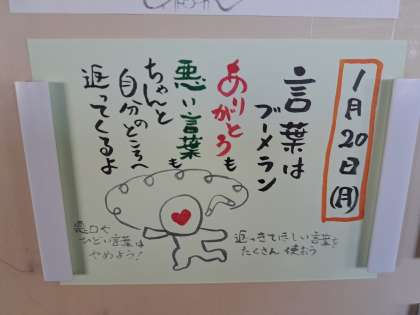 1月20日(月)
言葉は
ブーメラン
ありがとうも
悪い言葉も
ちゃんと
自分のところへ
返ってくるよ
悪口や
ひどい言葉は
やめよう!
返ってきてほしい言葉を
たくさん使おう